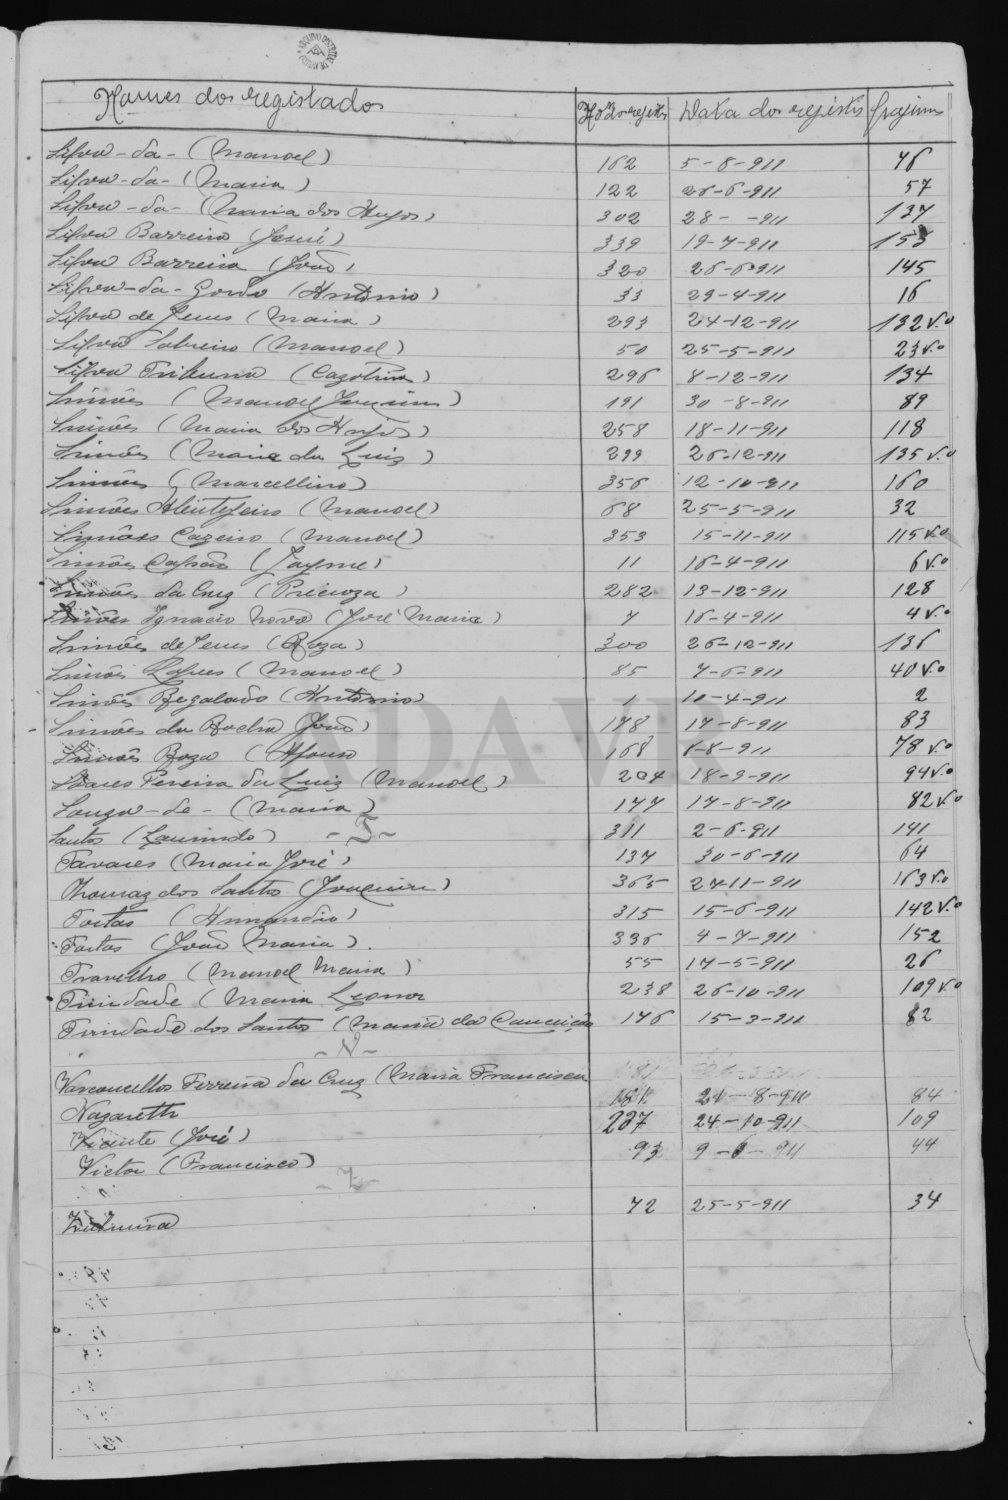 ARQUIVO DISTRITAL DE AVEIRO
Nomes dos registados Nº do registo Data dos registos Paginas
Silva-da-(Manoel) 162 5-8-911 76
Silva-da-(Maria) 122 26-6-911 57
Silva-da-(Maria dos Anjos) 302 28- -911 137
Silva Barreiro (José) 339 19-7-911 153
Silva Barreira (João) 320 26-6-911 145
Silva-da-Gordo (Antonio) 33 29-4-911 16
Silva de Jesus (Maria) 293 24-12-911 132 v.º
Silva Sobreiro (Manoel) 50 25-5-911 23 v.º
Silva Tribuna 296 8-12-911 134
Simões (Manoel Joaquim) 191 30-8-911 89
Simões (Maria dos Anjos) 258 18-11-911 118
Simões (Maria da Luiz) 299 26-12-911 135 v.º
Simões (Marcellino) 356 12-10-911 160
Simões Alentejeiro (Manoel) 68 25-5-911 32
Simões Cazeiro (Manoel) 353 15-11-911 115 v.º
Simões Capão (Jayme) 11 16-4-911 6 v.º
Simões da Cruz 282 13-12-911 128
Simões Ignacio Novo (José Maria) 7 16-4-911 4 v.º
Simões de Jesus (Roza) 300 26-12-911 136
Simões Lopes (Manoel) 85 7-6-911 40 v.º
Simões Regalado (Antonio) 1 10-4-911 2
Simões da Rocha (João) 178 17-8-911 83
Simões Roza (Afonso 168 8-8-911 78 v.º
Soares Pereira da Luiz (Manoel) 204 18-9-911 94 v.º
Souza-de-(Maria) 177 17-8-911 82 v.º
Santos (Laurindo) 311 2-6-911 141
-T-
Tavares (Maria José) 137 30-6-911 64
Thomaz dos Santos (Joaquim) 365 27-11-911 163 v.º
Tortas (Armando) 315 15-6-911 142 v.º
Tortas (João Maria) 336 4-7-911 152
Travelho (Manoel Maria) 55 17-5-911 26
Trindade (Maria Leonor 238 26-10-911 109 v.º
Trindade dos Santos (Maria da Conceição 176 15-3-911 82
-V-
Vasconcellos Ferreira da Cruz (Maria Francisca
Nazareth 181 21-8-911 84
Vicente (José) 237 24-10-911 109
Victor (Francisco) 93 9-6-911 44
-Z-
Zulmira 72 25-5-911 34
ADAVR